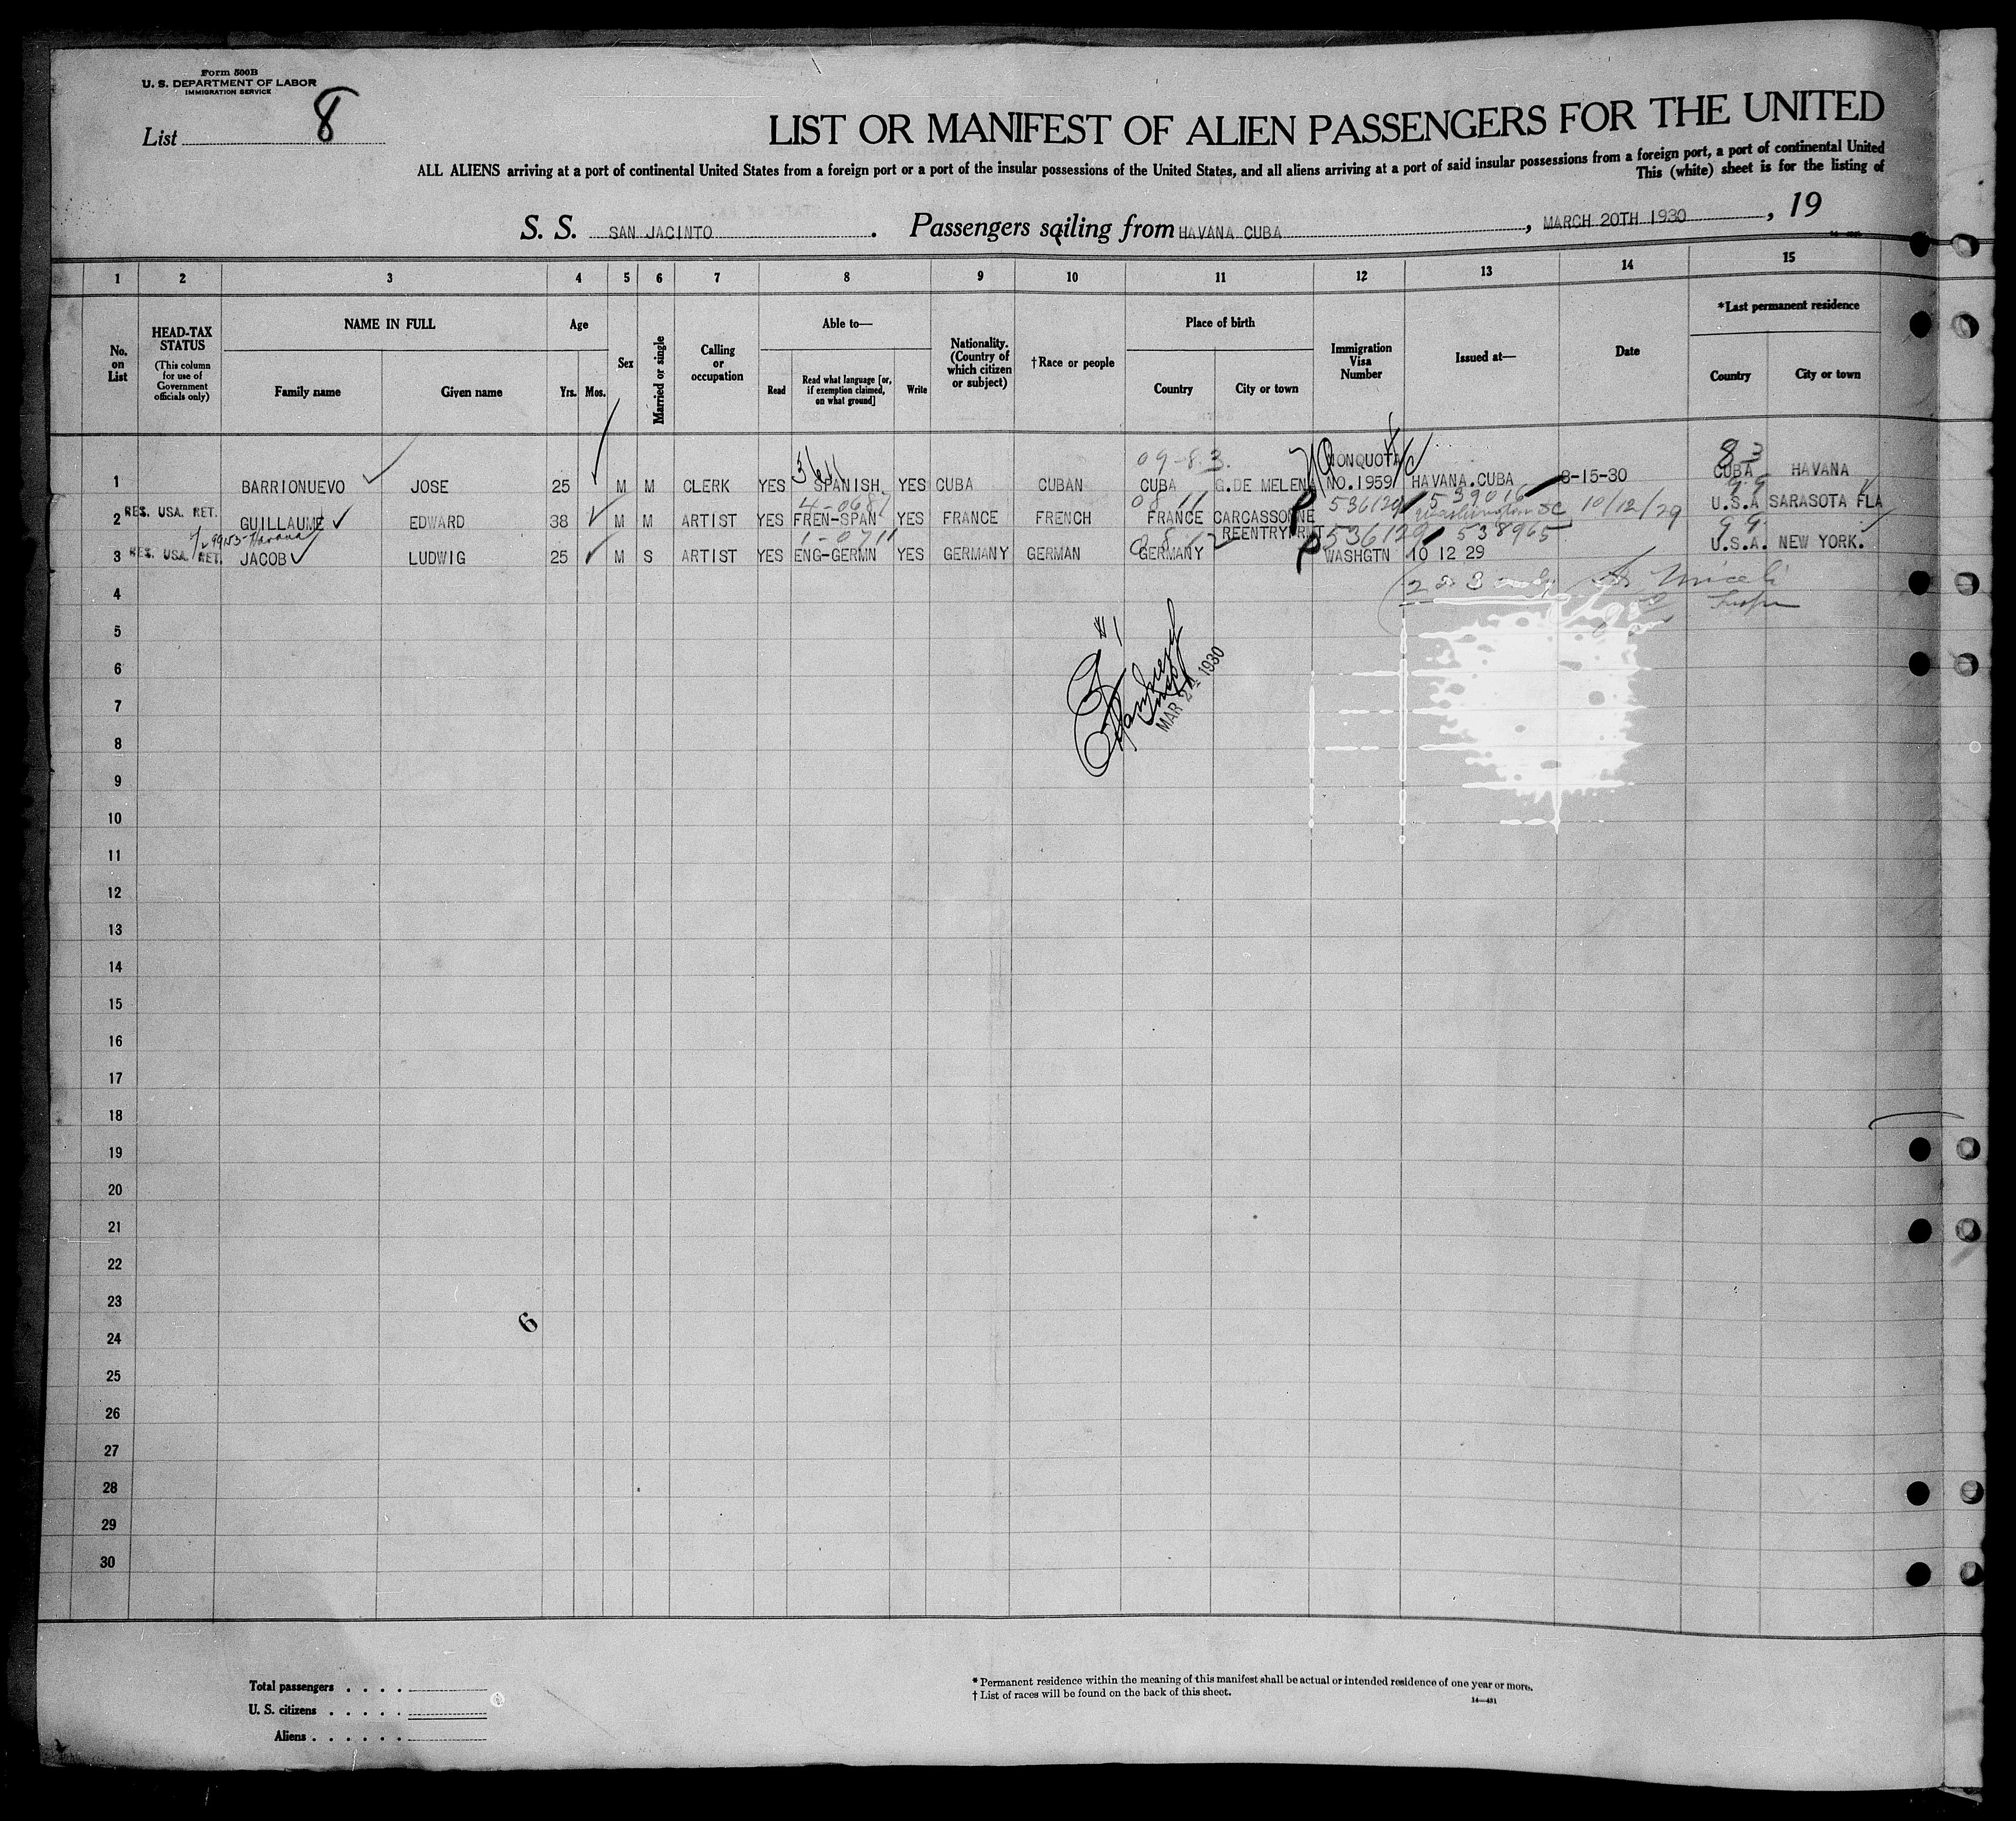 Form 500B
U. S. DEPARTMENT OF LABOR
IMMIGRATION SERVICE
List 8
LIST OR MANIFEST OF ALIEN PASSENGERS FOR THE UNITED
ALL ALIENS arriving at a port of continental United States from a foreign port or a port of the insular possessions of the United States, and all aliens arriving at a port of said insular possessions from a foreign port, a port of continental United
This (white) sheet is for the listing of
S. S. SAN JACINTO . Passengers sailing from HAVANA CUBA , MARCH 20TH 1930 , 19
1 2 3 4 5 6 7 8 9 10 11 12 13 14 15
No. on List
HEAD-TAX STATUS
(This column for use of Government officials only)
NAME IN FULL
Family name Given name
Age
Yrs. Mos.
Sex
Married or single
Calling or occupation
Able to—
Read
Read what language [or, if exemption claimed, on what ground]
Write
Nationality. (Country of which citizen or subject)
†Race or people
Place of birth
Country City or town
Immigration Visa Number
Issued at—
Date
*Last permanent residence
Country City or town
09-8.3. NONQUOTA 8-3
1 BARRIONUEVO JOSE 25 M M CLERK YES SPANISH YES CUBA CUBAN CUBA G.DE MELENA NO.1959 HAVANA.CUBA 3-15-30 CUBA HAVANA
4-0687 08 11 536129 539016 99
2 RES. USA. RET. GUILLAUME EDWARD 38 M M ARTIST YES FREN-SPAN YES FRANCE FRENCH FRANCE CARCASSONNE Washington DC 10/12/29 U.S.A SARASOTA FLA
Havana 1-0711 REENTRY PRMT 536129 538965 99
3 RES. USA. RET. JACOB LUDWIG 25 M S ARTIST YES ENG-GERMN YES GERMANY GERMAN GERMANY WASHGTN 10 12 29 U.S.A. NEW YORK.
4
2 & 3 only Miceli
Insp
5
#1
6
7
MAR 24 1930
8
9
10
11
12
13
14
15
16
17
18
19
20
21
22
23
6
24
25
26
27
28
29
30
Total passengers . . . .
U. S. citizens . . . . .
Aliens . . . . . .
* Permanent residence within the meaning of this manifest shall be actual or intended residence of one year or more.
† List of races will be found on the back of this sheet.
14—431